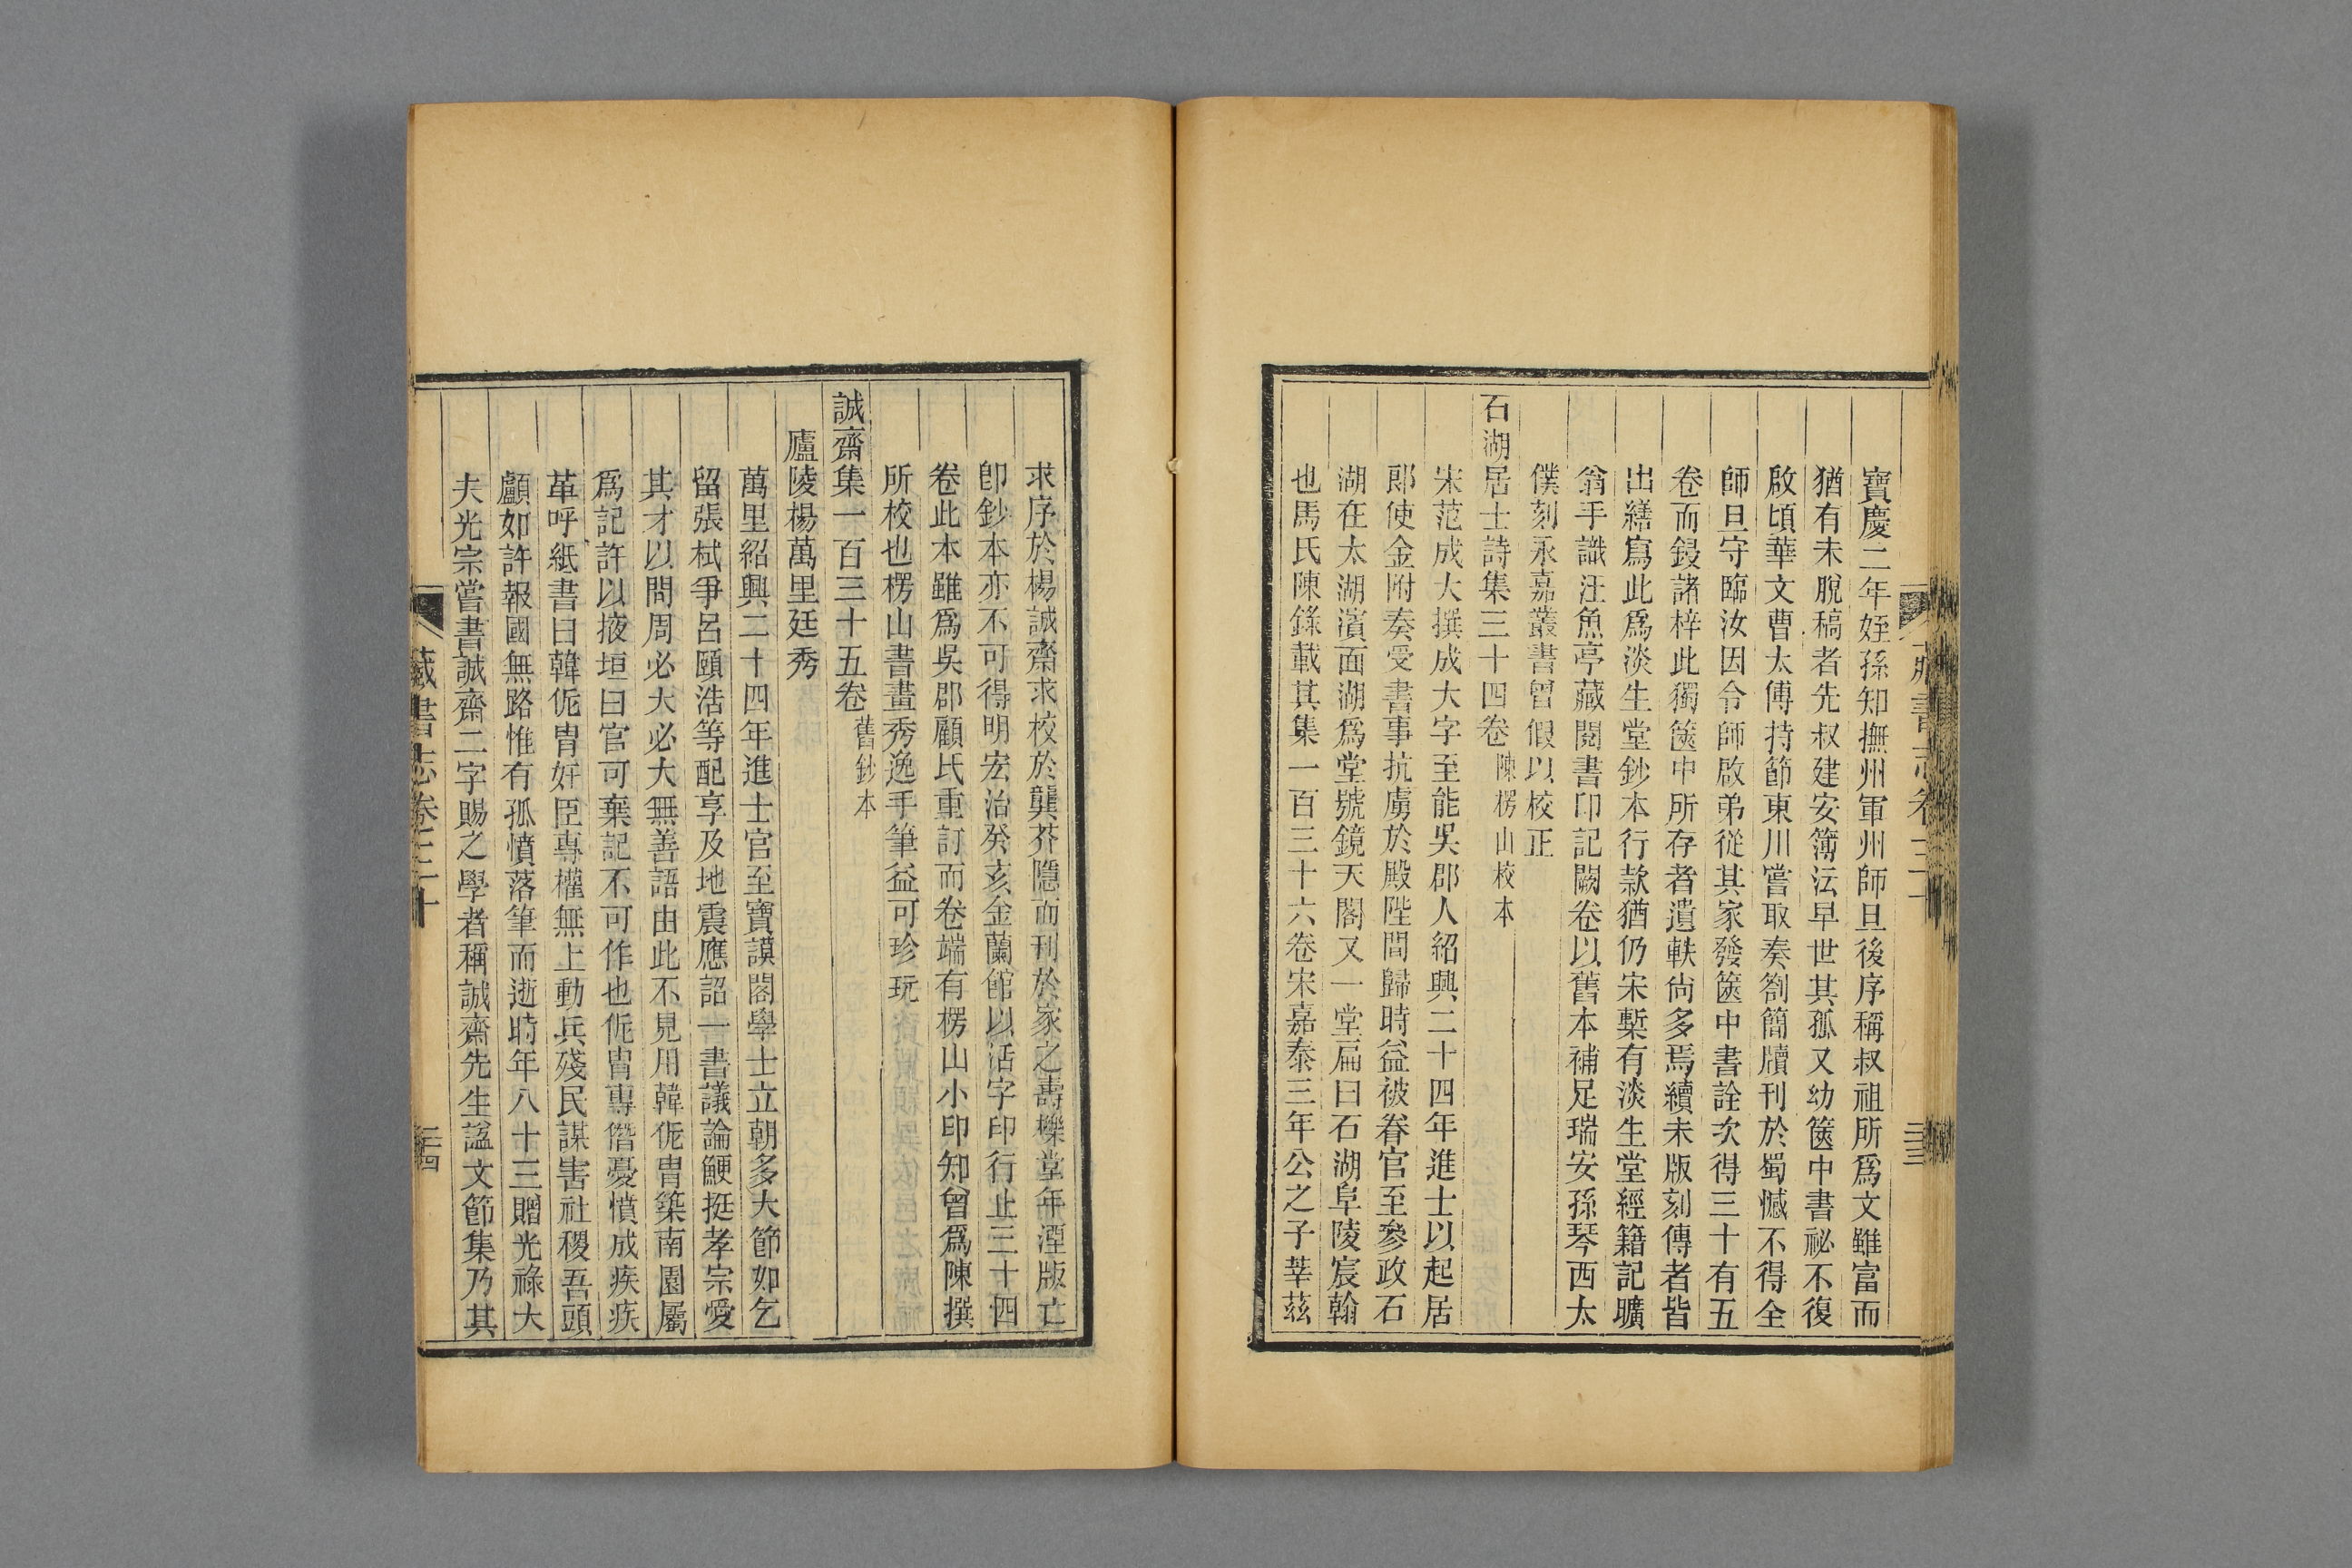 寶慶二年姪孫知撫州軍州師旦後序稱叔祖所爲文雖富而
猶有未脫稿者先叔建安簿沄早世其孤又幼篋中書祕不復
啟頃華文曹太傅持節東川嘗取奏劄簡牘刊於蜀憾不得全
師旦守臨汝因令師啟弟從其家發篋中書詮次得三十有五
卷而鋟諸梓此獨篋中所存者遺軼尙多焉續未版刻傳者皆
出繕寫此爲淡生堂鈔本行款猶仍宋槧有淡生堂經籍記曠
翁手識汪魚亭藏閱書印記闕卷以舊本補足瑞安孫琴西太
僕刻永嘉叢書曾假以校正
石湖居士詩集三十四卷 陳楞山校本
宋范成大撰成大字至能吳郡人紹興二十四年進士以起居
郞使金附奏受書事抗虜於殿陛間歸時益被眷官至參政石
湖在太湖濱面湖爲堂號鏡天閣又一堂扁曰石湖阜陵宸翰
也馬氏陳錄載其集一百三十六卷宋嘉泰三年公之子莘茲
藏書志卷三十
三三
求序於楊誠齋求校於龔芥隱而刊於家之壽櫟堂年湮版亡
卽鈔本亦不可得明宏治癸亥金蘭館以活字印行止三十四
卷此本雖爲吳郡顧氏重訂而卷端有楞山小印知曾爲陳撰
所校也楞山書畫秀逸手筆益可珍玩
誠齋集一百三十五卷 舊鈔本
廬陵楊萬里廷秀
萬里紹興二十四年進士官至寶謨閣學士立朝多大節如乞
留張栻爭呂頤浩等配享及地震應詔一書議論鯁挺孝宗愛
其才以問周必大必大無善語由此不見用韓侂胄築南園屬
爲記許以掖垣曰官可棄記不可作也侂胄專僭憂憤成疾疾
革呼紙書曰韓侂胄奸臣專權無上動兵殘民謀害社稷吾頭
顱如許報國無路惟有孤憤落筆而逝時年八十三贈光祿大
夫光宗嘗書誠齋二字賜之學者稱誠齋先生諡文節集乃其
藏書志卷三十
三四